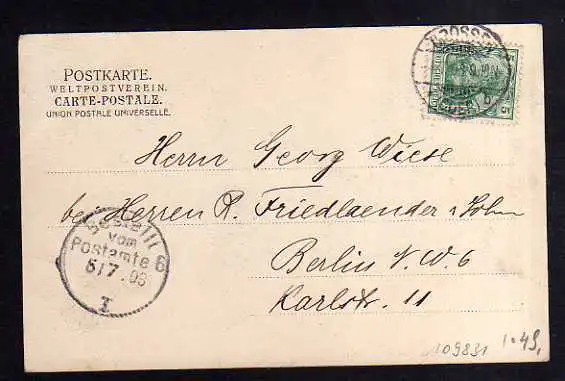 POSTKARTE.
WELTPOSTVEREIN.
CARTE-POSTALE.
UNION POSTALE UNIVERSELLE.
5
Herrn Georg Wiese
bei Herren R. Friedlaender & Sohn
Berlin N. W. 6
Karlstr. 11
Bestellt
vom
Postamte 6
5/7.03
T
109831